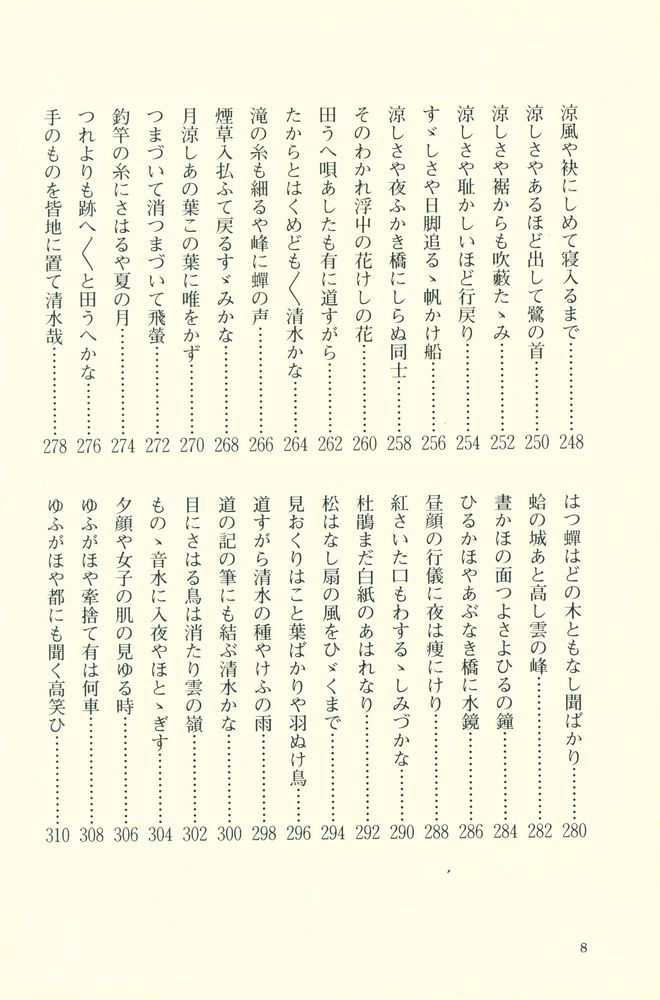 涼風や袂にしめて寝入るまで…………248
涼しさやあるほど出して鷺の首…………250
涼しさや裾からも吹藪たゝみ…………252
涼しさや恥かしいほど行戻り…………254
すゞしさや日脚追るゝ帆かけ船…………256
涼しさや夜ふかき橋にしらぬ同士…………258
そのわかれ浮草の花けしの花…………260
田うへ唄あしたも有に道すがら…………262
たからとはくめども〱清水かな…………264
滝の糸も細るや峰に蟬の声…………266
煙草入払ふて戻るすゞみかな…………268
月涼しあの葉この葉に唯をかず…………270
つまづいて消つまづいて飛螢…………272
釣竿の糸にさはるや夏の月…………274
つれよりも跡へ〱と田うへかな…………276
手のものを皆地に置て清水哉…………278
はつ蟬はどの木ともなし聞ばかり…………280
蛤の城あと高し雲の峰…………282
晝かほの面つよさよひるの鐘…………284
ひるかほやあぶなき橋に水鏡…………286
昼顔の行儀に夜は痩にけり…………288
紅さいた口もわするゝしみづかな…………290
杜鵑まだ白紙のあはれなり…………292
松はなし扇の風をひゞくまで…………294
見おくりはこと葉ばかりや羽ぬけ鳥…………296
道すがら清水の種やけふの雨…………298
道の記の筆にも結ぶ清水かな…………300
目にさはる鳥は消たり雲の嶺…………302
ものゝ音水に入夜やほとゝぎす…………304
夕顔や女子の肌の見ゆる時…………306
ゆふがほや牽捨て有は何車…………308
ゆふがほや都にも聞く高笑ひ…………310
8